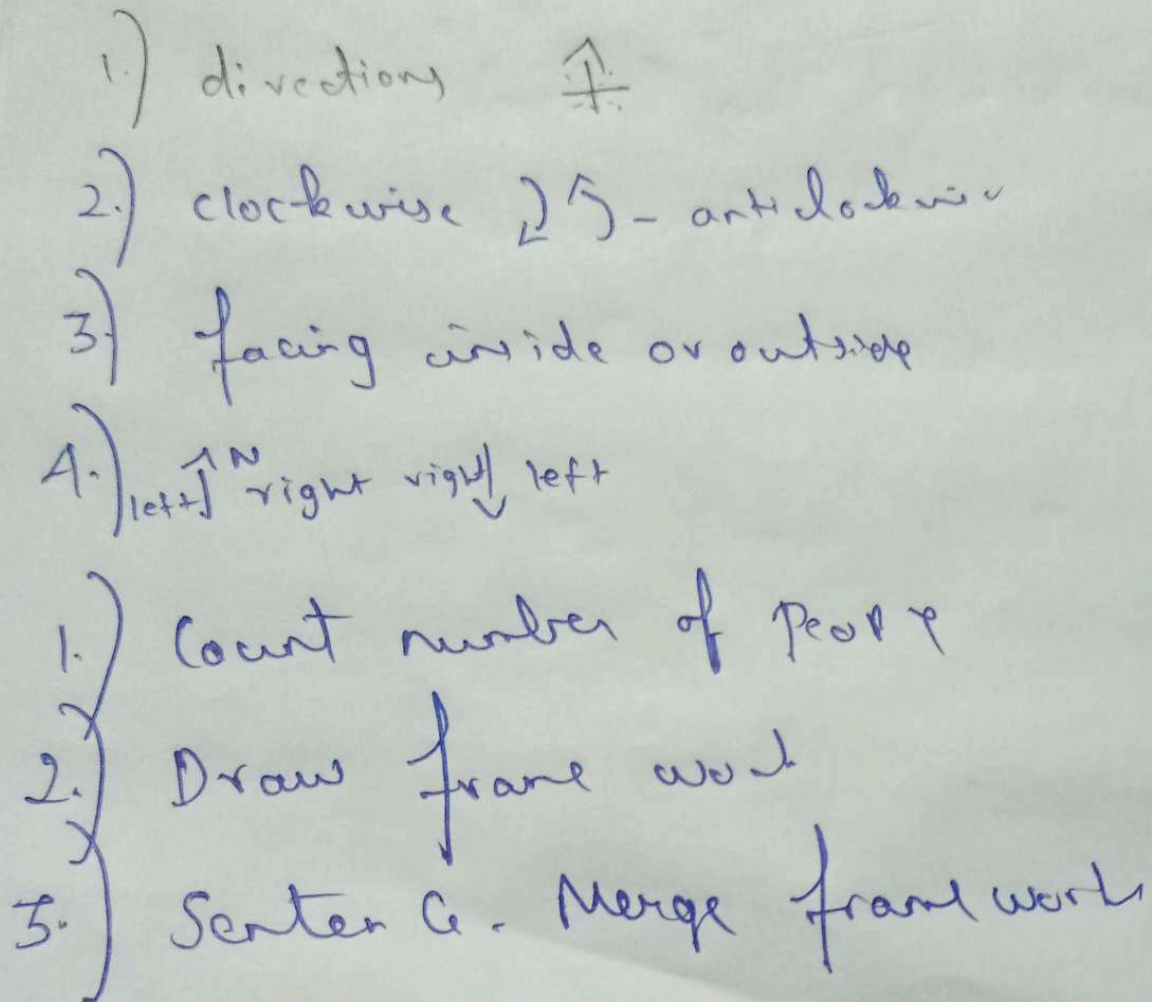 1.) directions
2.) clockwise - anticlockwise
3) facing inside or outside
4.) left N right right left
1.) Count number of People
2.) Draw frame work
3.) Sentence. Merge frame work